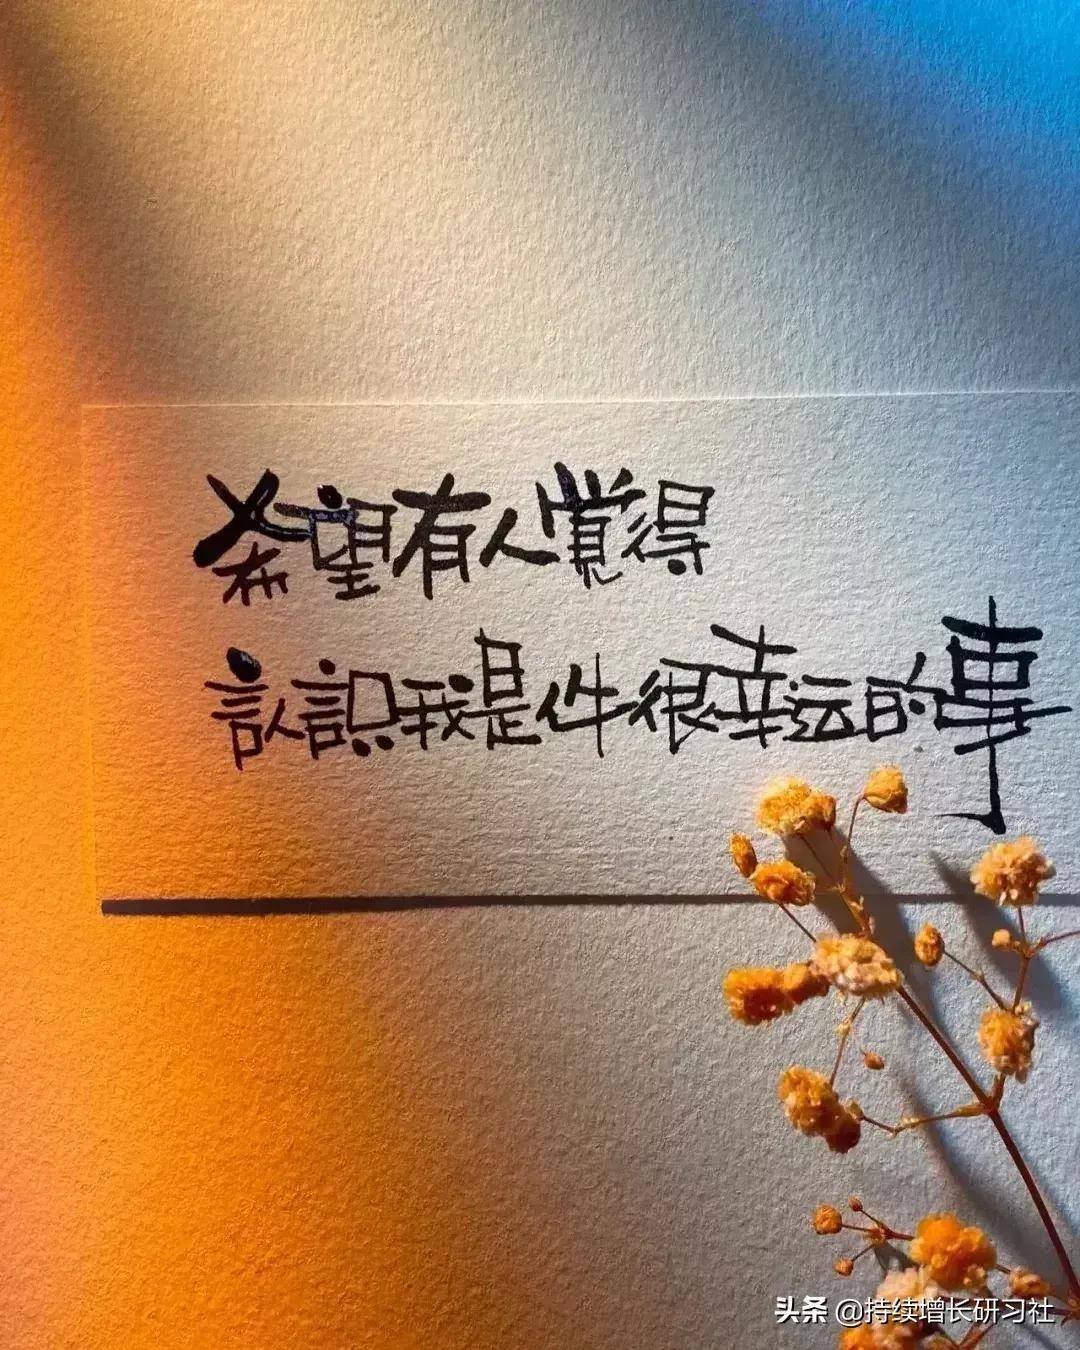 希望有人覺得
認識我是件很幸运的事
头条 @持续增长研习社